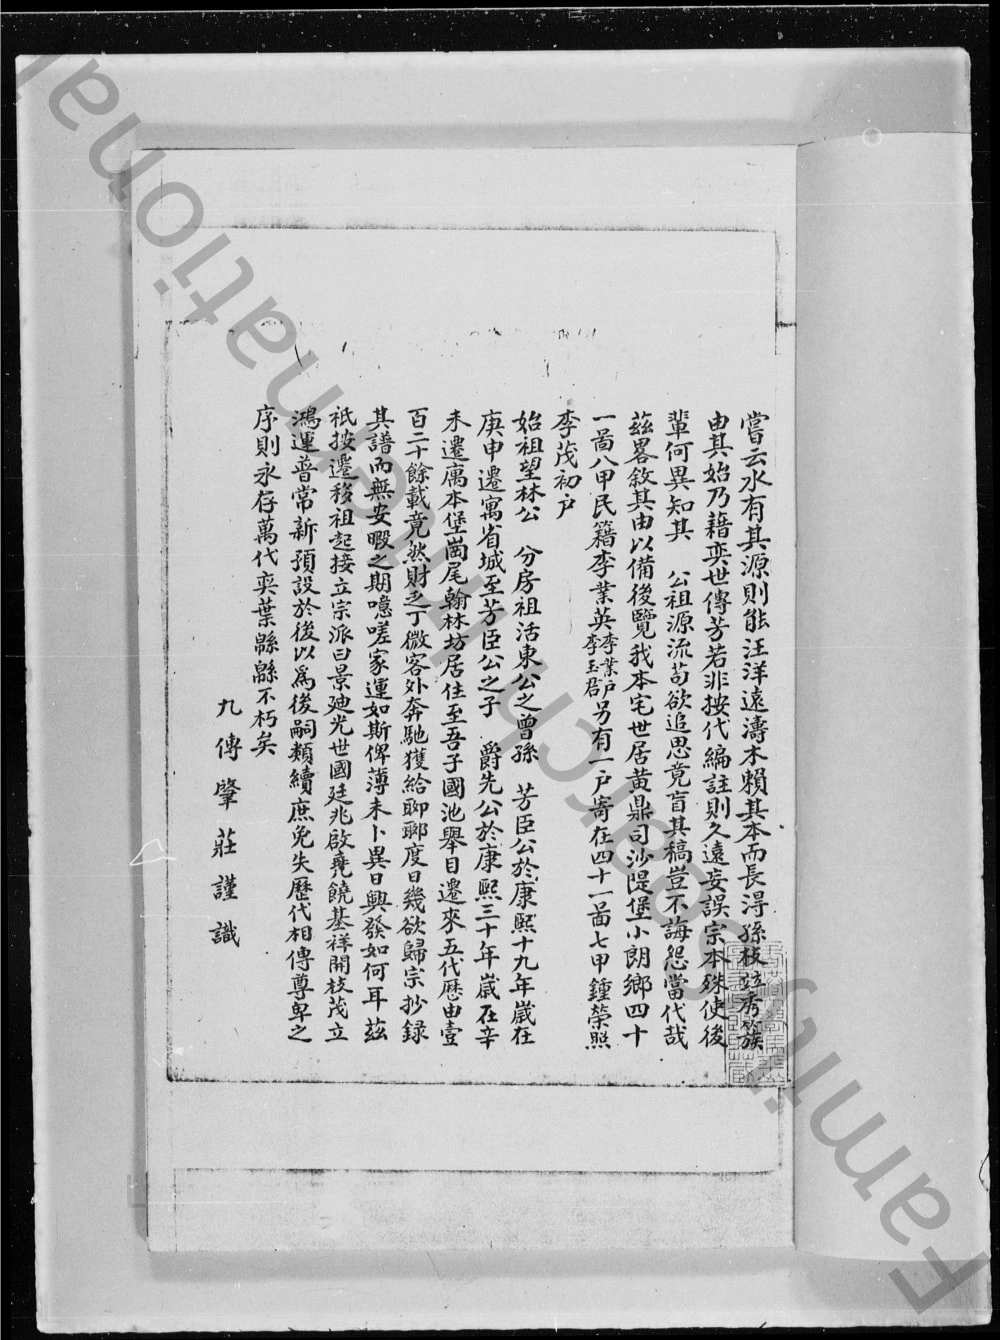 嘗云水有其源則能汪洋遠濤木賴其本而長淂孫枝竝秀簇
由其始乃藉奕世傳芳若非按代編註則久遠妄誤宗本殊使後
輩何異知其 公祖源流苟欲追思竟盲其稿豈不誨怨當代哉
茲畧敘其由以備後覽我本宅世居黄鼎司沙隄堡小朗鄉四十
一啚八甲民籍李業英李業户李玉君另有一户寄在四十一啚七甲鍾榮熙
李茂初户
始祖望林公 分房祖活東公之曾孫 芳臣公於康熙十九年歲在
庚申遷寓省城至芳臣公之子 爵先公於康熙三十年歲在辛
未遷寓本堡崗尾翰林坊居住至吾子國池舉目遷來五代歷由壹
百二十餘載竟然財乏丁微客外奔馳獲給聊聊度日幾欲歸宗抄録
其譜而無安暇之期噫嗟家運如斯俾薄未卜異日興發如何耳茲
祇按遷移祖起接立宗派曰景廸光世國廷兆啟堯饒基祥開枝茂立
鴻運普常新預設於後以為後嗣類續庶免失歷代相傳尊卑之
序則永存萬代奕葉緜緜不朽矣
九傳肇莊謹識
FamilySearch International